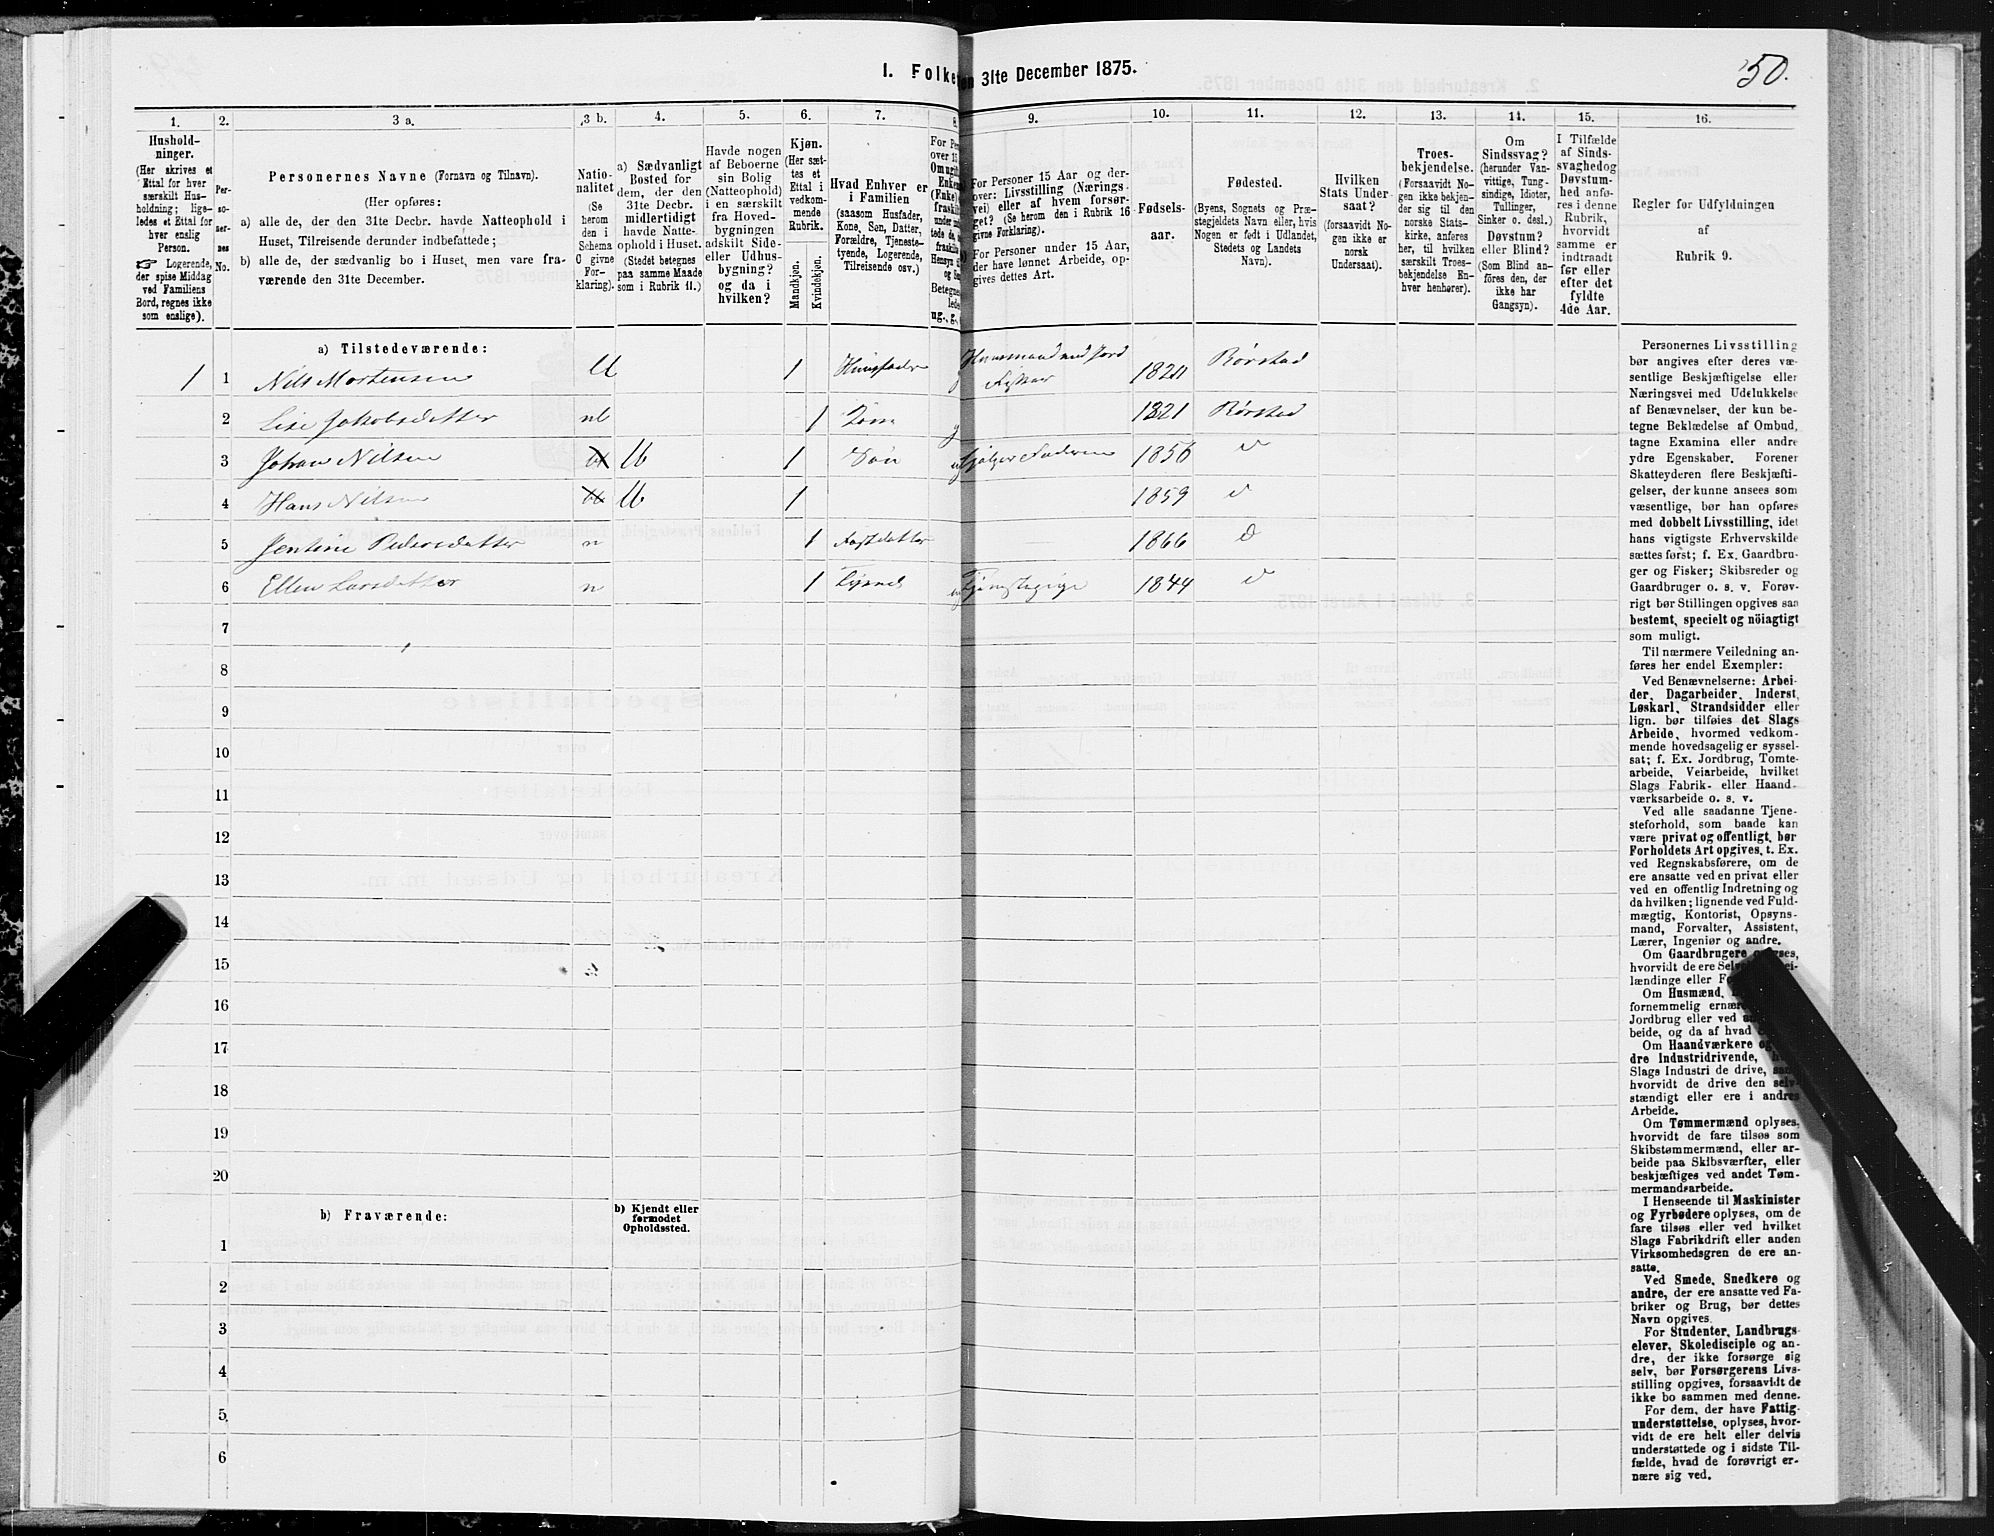 I. Folke
en 31te December 1875.
50.
1.
2.
3 a.
3 b.
4.
5.
6.
7.
8.
9.
10.
11.
12.
13.
14.
15.
16.
Hushold-
ninger.
(Her skrives et
Ettal for hver
særskilt Hus-
holdning; lige-
ledes et Ettal for
hver enslig
Person.
☞ Logerende,
der spise Middag
ved Familiens
Bord, regnes ikke
som enslige).
Per-
so-
ner-
nes
No.
Personernes Navne (Fornavn og Tilnavn).
(Her opføres:
a) alle de, der den 31te Decbr. havde Natteophold i
Huset, Tilreisende derunder indbefattede;
b) alle de, der sædvanlig bo i Huset, men vare fra-
værende den 31te December.
Natio-
nalitet
(Se
herom
den i
Schema
C givne
For-
klaring).
a) Sædvanligt
Bosted for
dem, der den
31te Decbr.
midlertidigt
havde Natte-
ophold i Huset.
(Stedet betegnes
paa samme Maade
som i Rubrik 11.)
Havde nogen
af Beboerne
sin Bolig
(Natteophold)
i en særskilt
fra Hoved-
bygningen
adskilt Side-
eller Udhus-
bygning?
og da i
hvilken?
Kjøn.
(Her sæt-
tes et
Ettal i
vedkom-
mende
Rubrik.
Mandkjøn.
Kvindekjøn.
Hvad Enhver er
i Familien
(saasom Husfader,
Kone, Søn, Datter,
Forældre, Tjeneste-
tyende, Logerende,
Tilreisende osv.)
For Pers
over 15
Om ugift
Enkem
(Enke)
fraskilt
ug., g.,
For Personer 15 Aar og der-
over: Livsstilling (Nærings-
vei) eller af hvem forsør-
get? (Se herom den i Rubrik 16
givne Forklaring).
For Personer under 15 Aar,
der have lønnet Arbeide, op-
gives dettes Art.
Fødsels-
aar.
Fødested.
(Byens, Sognets og Præ-
stegjeldets Navn eller, hvis
Nogen er født i Udlandet,
Stedets og Landets
Navn).
Hvilken
Stats Under-
saat?
(forsaavidt No-
gen ikke er
norsk
Undersaat).
Troes-
bekjendelse.
(Forsaavidt No-
gen ikke bekjen-
der sig til den
norske Stats-
kirke, anføres
her, til hvilken
særskilt Troes-
bekjendelse En-
hver henhører).
Om
Sindssvag?
(herunder Van-
vittige, Tung-
sindige, Idioter,
Tullinger,
Sinker o. desl.)
Døvstum?
eller Blind?
(Som Blind an-
føres den, der
ikke har
Gangsyn).
I Tilfælde
af Sinds-
svaghed og
Døvstum-
hed anfø-
res i denne
Rubrik,
hvorvidt
samme er
indtraadt
før eller
efter det
fyldte
4de Aar.
Regler for Udfyldningen
af
Rubrik 9.
a) Tilstedeværende:
1 1 Nils Mortensen U 1 Huusfader Huusmand med Jord
Fisker 1820 Rørstad
2 Lise Jakobsdatter nb 1 Kone g 1821 Rørstad
3 Johan Nilsen U 1 Søn u Hjælper Faderen 1856
4 Hans Nilsen U 1 1859
5 Jentine Pedersdatter n 1 Fostdatter 1866
6 Ellen Larsdatter n 1 Tjened. u Tjenstepige 1844
7
8
9
10
11
12
13
14
15
16
17
18
19
20
b) Fraværende:
b) Kjendt eller
formodet
Opholdssted.
1
2
3
4
5
6
Personernes Livsstilling
bør angives efter deres væ-
sentlige Beskjæftigelse eller
Næringsvei med Udelukkelse
af Benævnelser, der kun be-
tegne Beklædelse af Ombud,
tagne Examina eller andre
ydre Egenskaber. Forener
Skatteyderen flere Beskjæfti-
gelser, der kunne ansees som
væsentlige, bør han opføres
med dobbelt Livsstilling, idet
hans vigtigste Erhvervskilde
sættes først; f. Ex. Gaardbru-
ger og Fisker; Skibsreder og
Gaardbruger o. s. v. Forøv-
rigt bør Stillingen opgives saa
bestemt, specielt og nöiagtigt
som muligt.
Til nærmere Veiledning an-
føres her endel Exempler:
Ved Benævnelserne: Arbei-
der, Dagarbeider, Inderst,
Løskarl, Strandsidder eller
lign. bør tilføies det Slags
Arbeide, hvormed vedkom-
mende hovedsagelig er syssel-
sat; f. Ex. Jordbrug, Tomte-
arbeide, Veiarbeide, hvilket
Slags Fabrik- eller Haand-
værksarbeide o. s. v.
Ved alle saadanne Tjene-
steforhold, som baade kan
være privat og offentligt, bør
Forholdets Art opgives, t. Ex.
ved Regnskabsførere, om de
ere ansatte ved en privat eller
ved en offentlig Indretning og
da hvilken; lignende ved Fuld-
mægtig, Kontorist, Opsyns-
mand, Forvalter, Assistent,
Lærer, Ingeniør og andre.
Om Gaardbrugere oplyses,
hvorvidt de ere Selv
lændinge eller F
Om Husmænd,
fornemmelig ernæ
Jordbrug eller ved
beide, og da af hvad
Om Haandværkere og
dre Industridrivende,
Slags Industri de drive,
hvorvidt de drive den selv-
stændigt eller ere i andres
Arbeide.
Om Tømmermænd oplyses,
hvorvidt de fare tilsøs som
Skibstømmermænd, eller ar-
beide paa Skibsværfter, eller
beskjæftiges ved andet Tøm-
mermandsarbeide.
I Henseende til Maskinister
og Fyrbødere oplyses, om de
fare tilsøs eller ved hvilket
Slags Fabrikdrift eller anden
Virksomhedsgren de ere an-
satte.
Ved Smede, Snedkere og
andre, der ere ansatte ved Fa-
briker og Brug, bør dettes
Navn opgives.
For Studenter, Landbrugs-
elever, Skoledisciple og an-
dre, der ikke forsørge sig
selv, bør Forsørgerens Livs-
stilling opgives, forsaavidt de
ikke bo sammen med denne.
For dem, der have Fattig-
understøttelse, oplyses, hvor-
vidt de ere helt eller delvis
understøttede og i sidste Til-
fælde, hvad de forøvrigt er-
nære sig ved.